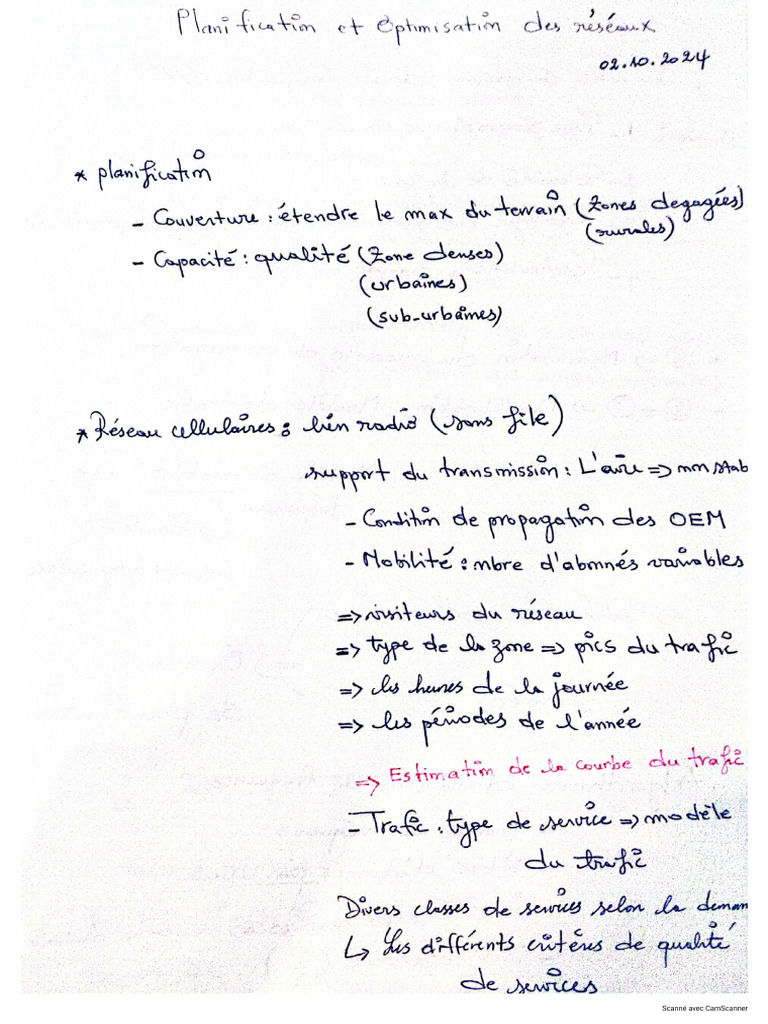 Planification et Optimisation des réseaux
02.10.2024
* planification
- Couverture : étendre le max du terrain (Zones degagées)
(rurales)
- Capacité : qualité (Zone denses)
(urbaines)
(sub-urbaines)
* Réseau cellulaires : lien radio (sans file)
support du transmission : L'aire => non stab
- Condition de propagation des OEM
- Mobilité : nbre d'abonnés variables
=> visiteurs du réseau
=> type de la zone => pics du trafic
=> les heures de la journée
=> les périodes de l'année
=> Estimation de la courbe du trafic
- Trafic : type de service => modèle
du trafic
Divers classes de services selon la deman
↳ Les différents critères de qualité
de services
Scanné avec CamScanner